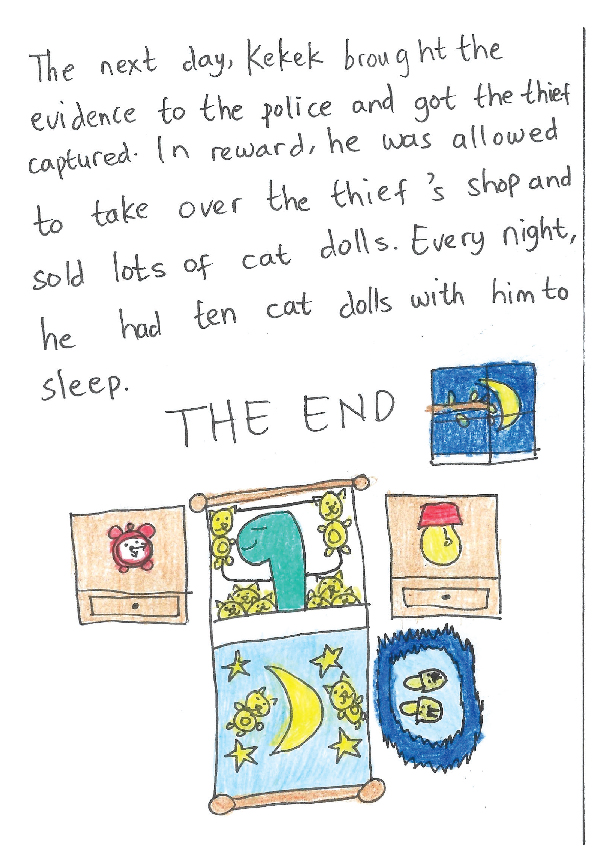 The next day, Kekek brought the
evidence to the police and got the thief
captured. In reward, he was allowed
to take over the thief's shop and
sold lots of cat dolls. Every night,
he had ten cat dolls with him to
sleep.
THE END